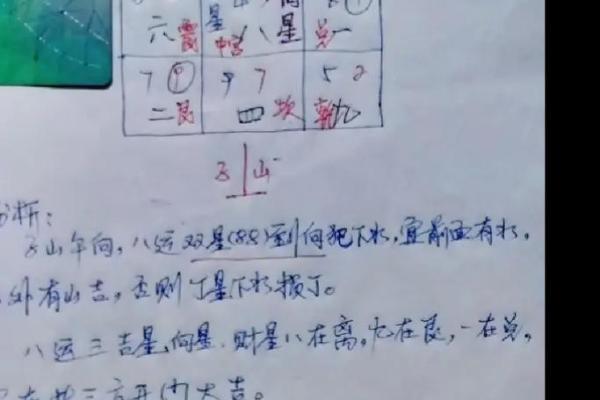 星 星
六 震 中宫 八 兑 一
7 9 9 7 5 2
二 艮 四 坎 乾 九
子 山
分析:
子山午向,八运双星(88)到向犯下水,宜前面有水,
外有山吉,否则丁星下水损丁。
八运三吉星,向星,财星八在离,九在艮,一在兑,
在此三方开门大吉。